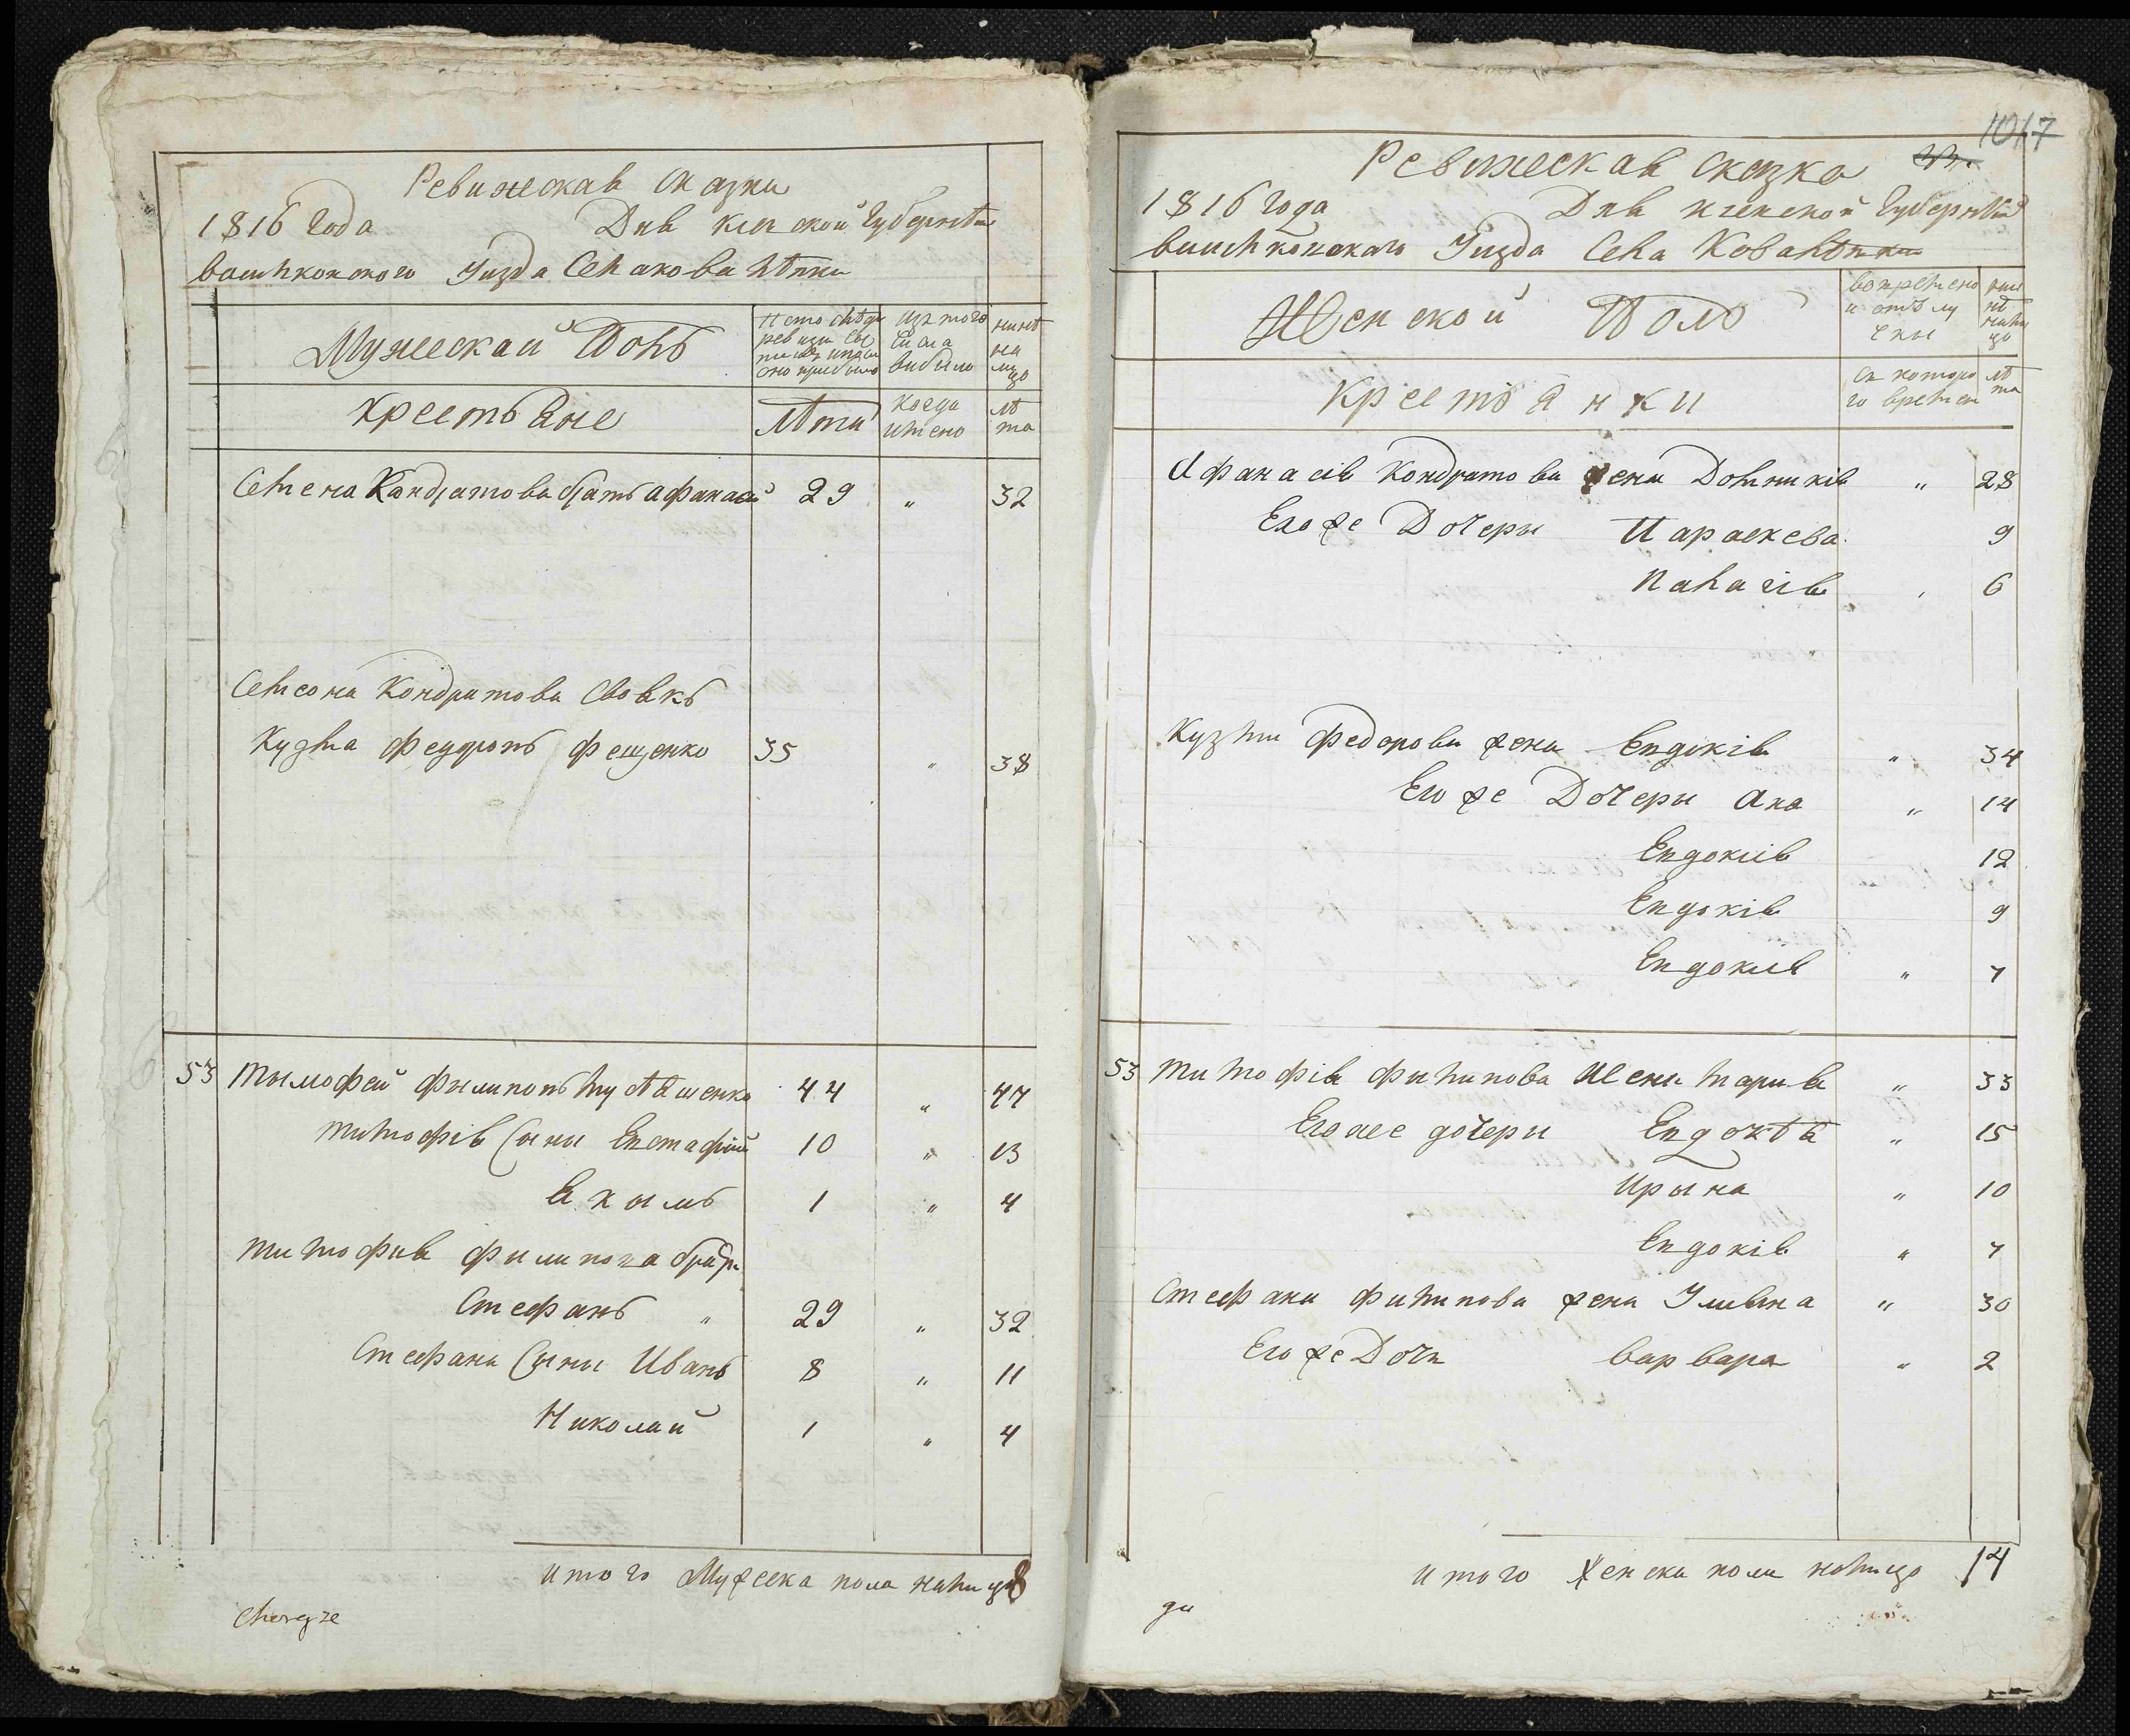 Ревижеская Сказка
1816 Года Дня киевской Губернѣи
васильковского Уизда Села ковалѣвки
Мужескай Полъ
По последн ревизи Со
изъ того числа выбыло
нинѣ на лицо
Крестьяне
Лѣта
когда имено
лѣ та
Семена Кондратова братъ афанасий 29 " 32
Семеона Кондратова Своякъ
Кузма федоровъ фещенко 35 " 38
53 Тымофей филиповъ 44 " 47
Тимофія Сыны Евстафий 10 " 13
Якымъ 1 " 4
Тимофия филипова братъ
Стефанъ " 29 " 32
Стефана Сыны Иванъ 8 " 11
Николай 1 " 4
итого Мужеска пола налицо 8
1017
Ревижеская Сказка
1816 Года Дня киевской Губернѣи
васильковскаго Уизда Села Ковалѣвки
Женской Полъ
во времено и отълу чки
нин нѣ нали цо
Крестьянки
Съ которо го времен
лѣ та
Афанасія Кондратова жена Домникія " 28
Его же Дочеры Параскева 9
Палагія 6
Кузми Федорова жена Евдокія " 34
Его же Дочеры Ана " 14
Евдокия 12
Евдокія 9
Евдокия " 7
53 Тимофія Филипова Жена Мария " 33
Его же дочери Евдокѣя " 15
Ирына " 10
Евдокія " 7
Стефана филипова жена Ульяна " 30
Его же Дочь варвара " 2
итого женска пола налицо 14